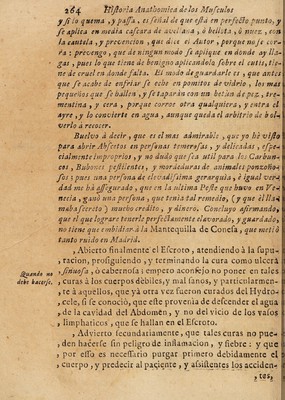 264 Historia Anathomica de los Musculos
y si lo quema, y passa, es señal de que està en perfecto punto, y
se aplica en media cascara de avellana, ò bellota, ò nuez, con
la cautela, y prevencion, que dice el Autor, porque no se cor-
ra; prevengo, que de ningun modo se aplique en donde ay lla-
gas, pues lo que tiene de benigno aplicandolo sobre el cutis, tie-
ne de cruel en donde falta. El modo de guardarle es, que antes
que se acabe de enfriar se eche en pomitos de vidrio, los mas
pequeños que se hallen, y se taparàn con un betun de pez, tre-
mentina, y cera, porque corroe otra qualquiera, y entra el
ayre, y lo convierte en agua, aunque queda el arbitrio de bol-
verlo à recocer.
Buelvo à decir, que es el mas admirable, que yo he visto
para abrir Abscessos en personas temerosas, y delicadas, espe-
cialmente improprios, y no dudo que sea util para los Carbun-
cos, Bubones pestilentes, y mordeduras de animales ponzoño-
sos; pues una persona de elevadissima gerarquia, è igual ver-
dad me hà assegurado, que en la ultima Peste que huvo en Ve-
necia, ganò una persona, que tomia tal remedio, (y que èl lla-
maba secreto) mucho credito, y dinero. Concluyo afirmando,
que el que lograre tenerle perfectamente elavorado, y guardado,
no tiene que embidiar à la Mantequilla de Conesa, que metiò
tanto ruido en Madrid.
Abierto finalmente el Escroto, atendiendo à la supu-
racion, prosiguiendo, y terminando la cura como ulcera
Quando no debe hacerse.
sinuosa, ò cabernosa; empero aconsejo no poner en tales
curas à los cuerpos dèbiles, y mal sanos, y particularmen-
te à aquellos, que yà otra vez fueron curados del Hydro-
cele, si se conociò, que este provenìa de descender el agua
de la cavidad del Abdomen, y no del vicio de los vasos
limphaticos, que se hallan en el Escroto.
Advierto secundariamente, que tales curas no pue-
den hacerse sin peligro de inflamacion, y fiebre: y que
por esso es necessario purgar primero debidamente el
cuerpo, y predecir al paciente, y assistentes los acciden-
tes,